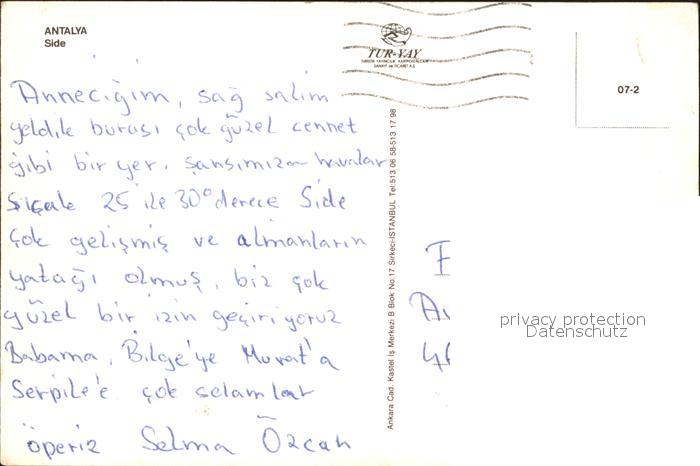 ANTALYA
Side
TUR-YAY
TURİSTİK YAYINCILIK KARTPOSTALCILIK
SANAYİ ve TİCARET A.Ş.
07-2
Anneciğim, sağ salim
geldik burası çok güzel cennet
gibi bir yer. şansımıza havalar
sıcak 25 ile 30° derece Side
çok gelişmiş ve almanların
yatağı olmuş, biz çok
güzel bir izin geçiriyoruz
Babama, Bilge'ye Murat'a
Serpile'e çok selamlar
öperiz Selma Özcan
Ankara Cad. Kastel İş Merkezi B Blok No.17 Sirkeci-İSTANBUL Tel:513 06 58-513 17 98
privacy protection
Datenschutz